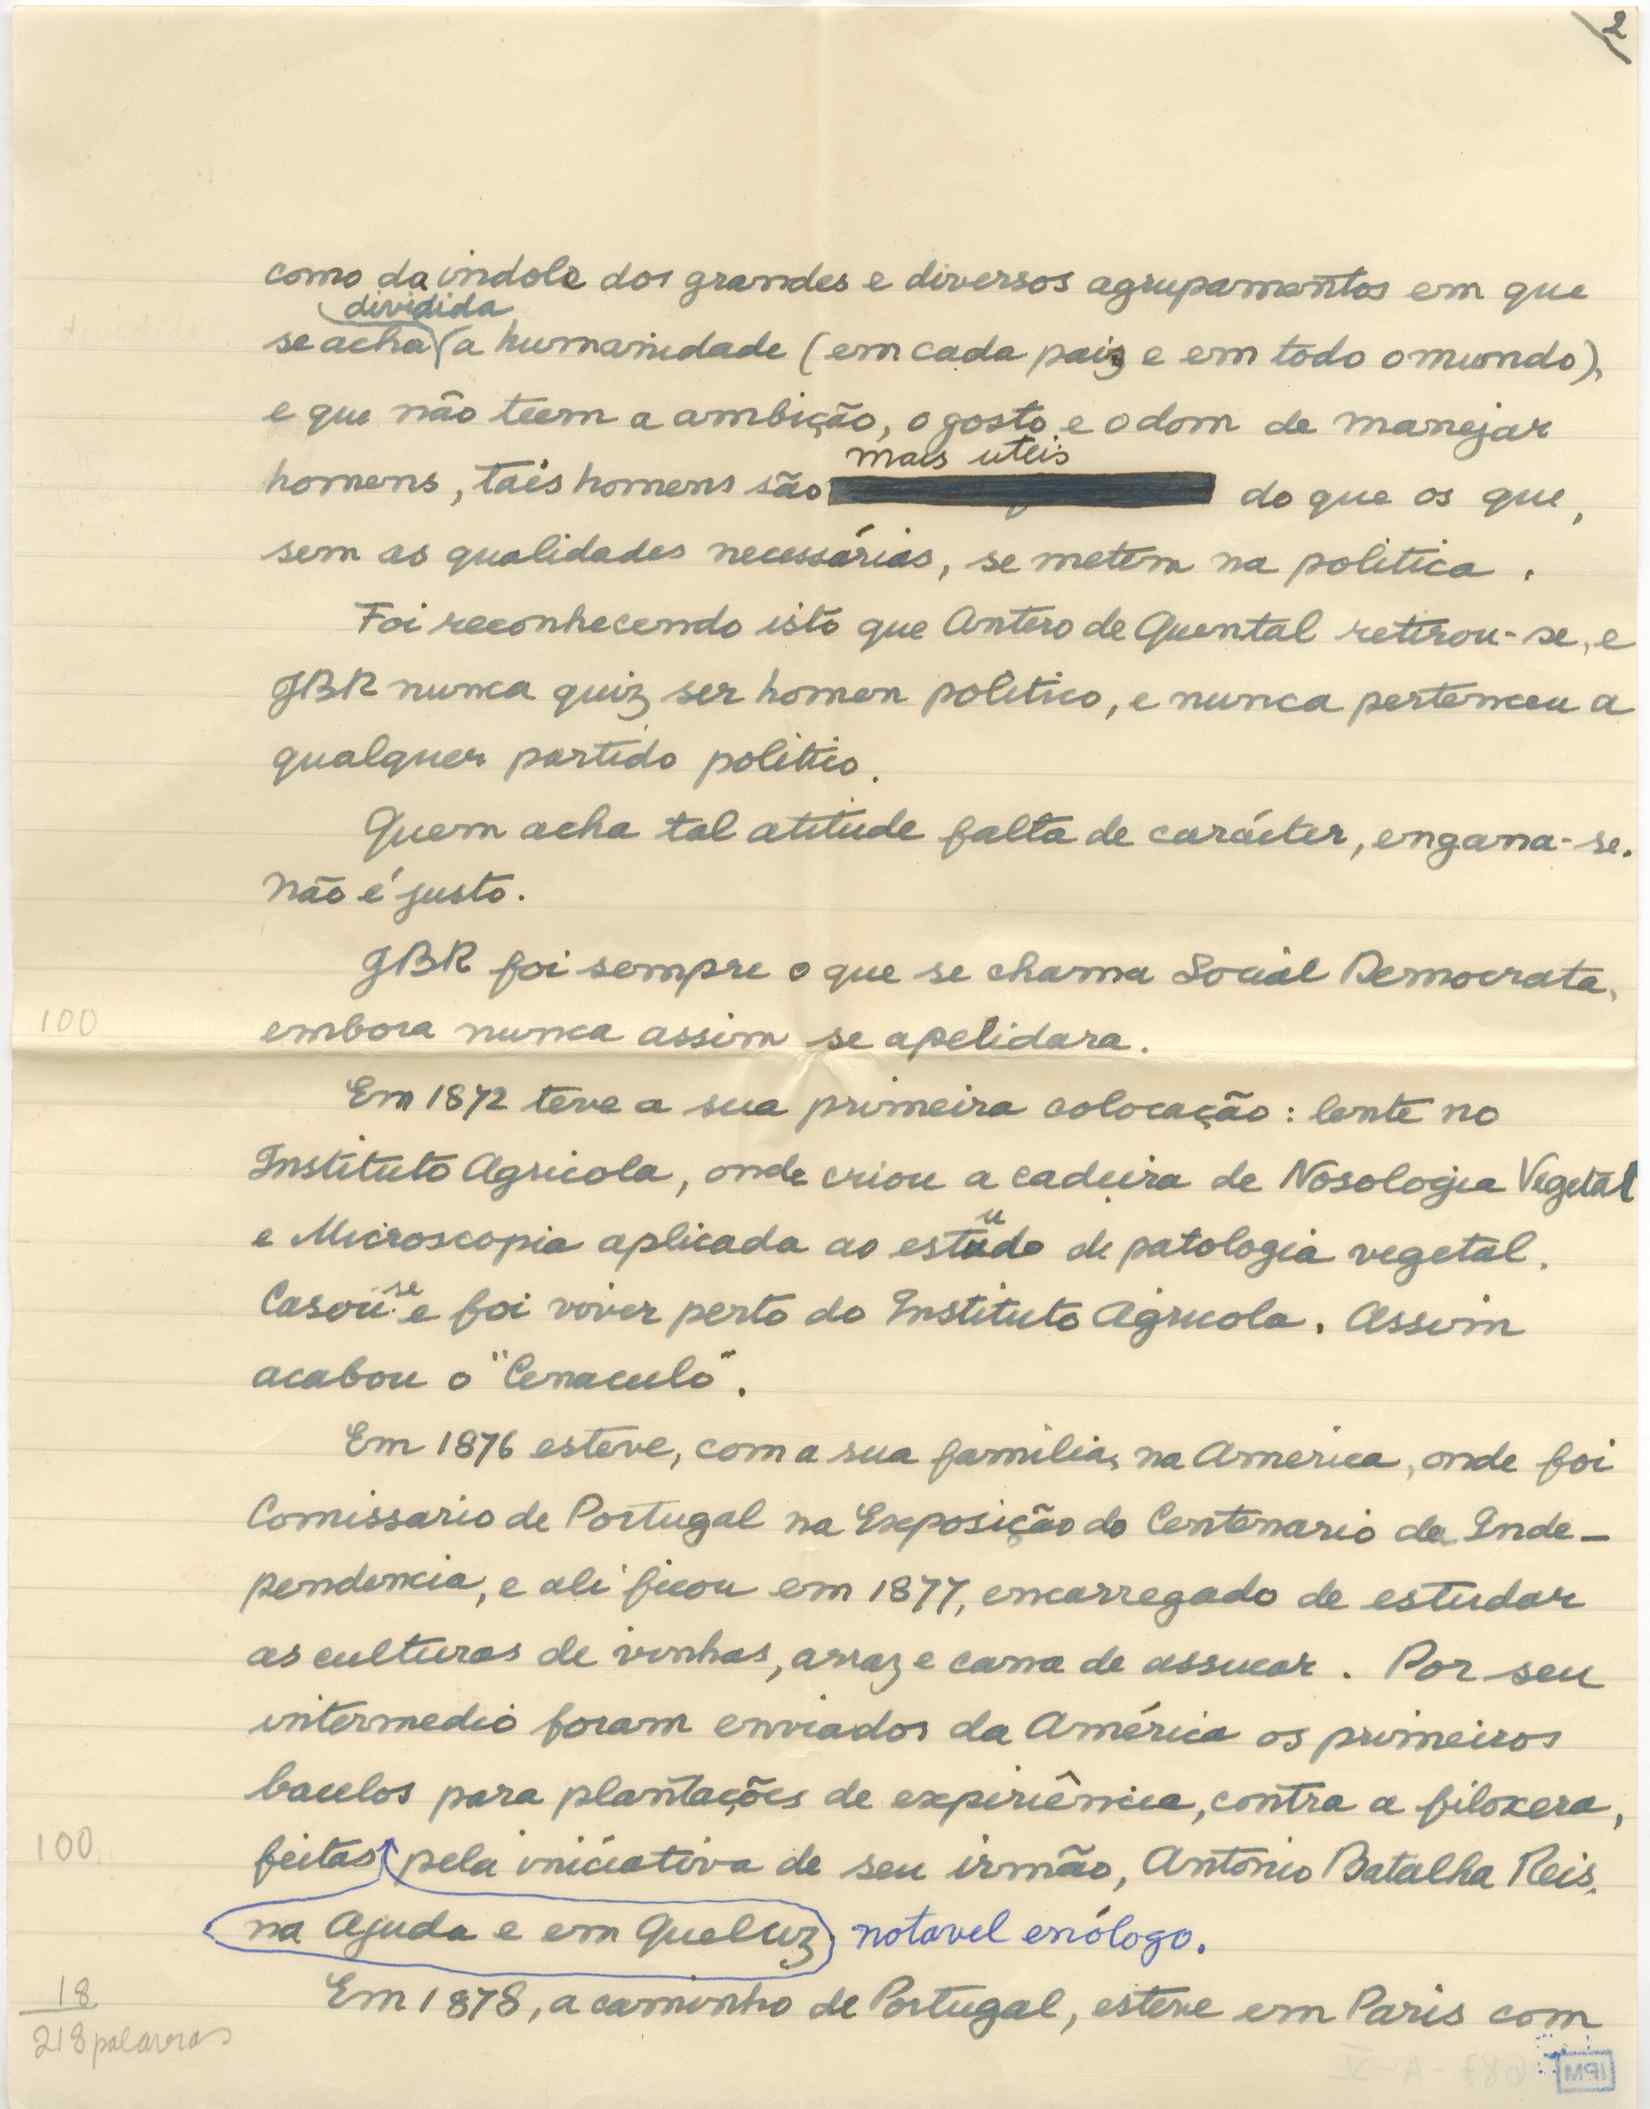 2
como da indole dos grandes e diversos agrupamentos em que
dividida
se acha a humanidade (em cada paiz e em todo o mundo),
e que não teem a ambição, o gosto e o dom de manejar
mais uteis
homens, tais homens são do que os que,
sem as qualidades necessárias, se metem na politica.
Foi reconhecendo isto que Antero de Quental retirou-se, e
JBR nunca quiz ser homem politico, e nunca pertenceu a
qualquer partido politico.
Quem acha tal atitude falta de carácter, engana-se.
Não é justo.
JBR foi sempre o que se chama Social Democrata,
100
embora nunca assim se apelidara.
Em 1872 teve a sua primeira colocação: lente no
Instituto Agricola, onde criou a cadeira de Nosologia Vegetal
u
e Microscopia aplicada ao estudo de patologia vegetal.
se
Casou-e foi viver perto do Instituto Agricola. Assim
acabou o "Cenaculo".
Em 1876 esteve, com a sua familia, na America, onde foi
Comissario de Portugal na Exposição do Centenario da Inde-
pendencia, e ali ficou em 1877, encarregado de estudar
as culturas de vinhas, arraz e cana de assucar. Por seu
intermedio foram enviados da América os primeiros
bacelos para plantações de expiriência, contra a filoxera,
100
feitas pela iniciativa de seu irmão, António Batalha Reis,
na Ajuda e em Queluz, notavel enólogo.
18
Em 1878, a caminho de Portugal, esteve em Paris com
218 palavras
IPM